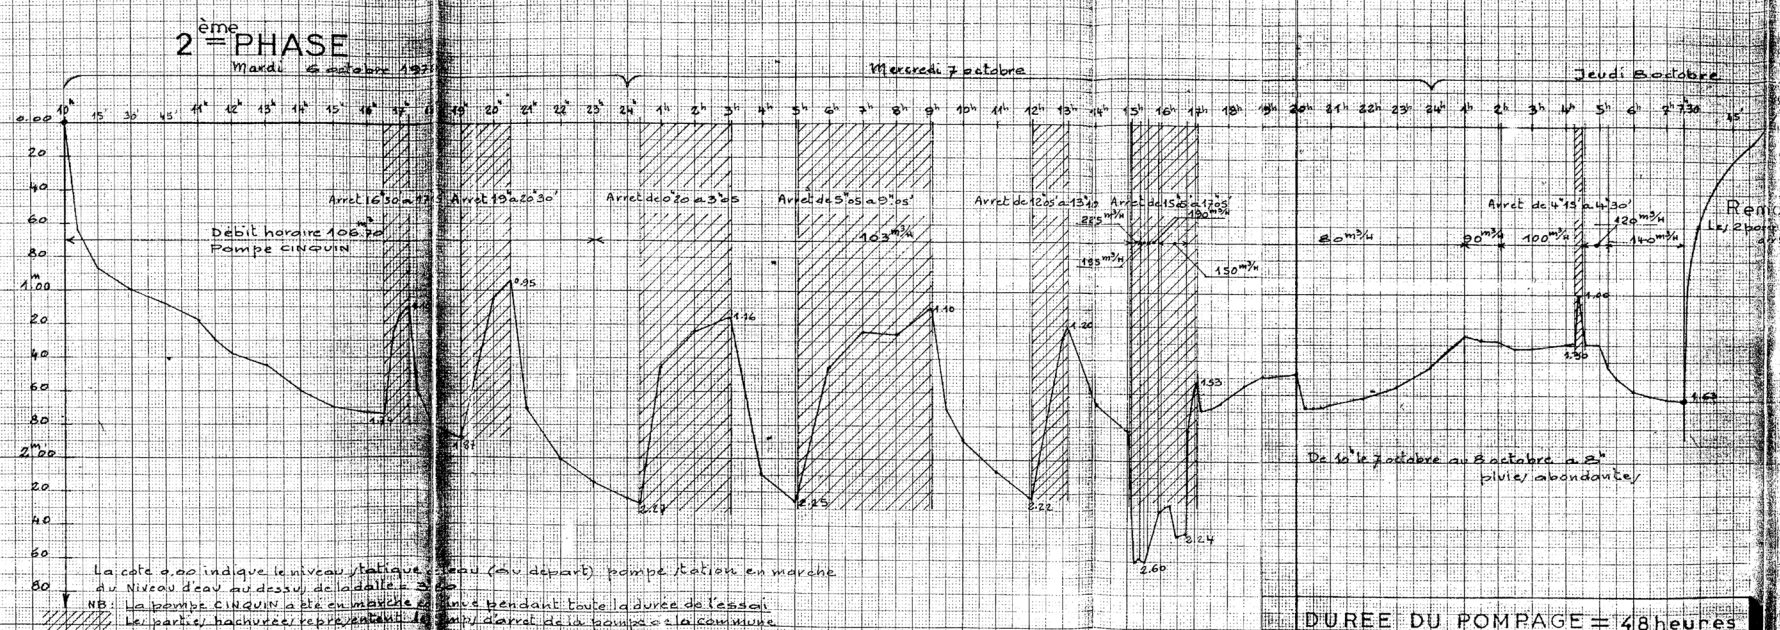 2ème PHASE
Mardi 6 octobre 197
Mercredi 7 octobre
Jeudi 8 octobre
10h 15' 30' 45' 11h 12h 13h 14h 15h 16h 17h 19h 20h 22h 23h 24h 1h 2h 3h 4h 5h 6h 7h 8h 9h 10h 11h 12h 13h 14h 15h 16h 17h 18h 19h 20h 21h 22h 23h 24h 1h 2h 3h 4h 5h 6h 7h 7.30 45'
0.00
20
40
60
80
m
1.00
20
40
60
80
m
2.00
20
40
60
80
Arret 16h30 a 17 Arret 19h a 20h30' Arret de 0h20 a 3h05 Arret de 5h05 a 9h05' Arret de 12h05' a 13h10 Arret de 15h a 17h05' Arret de 4h15' a 4h30'
Débit horaire 106.70 m3
Pompe CINQUIN
103 m3/H
225 m3/H
190 m3/H
185 m3/H
150 m3/H
80 m3/H
90 m3/H
100 m3/H
120 m3/H
140 m3/H
Les 2 pom
0.95
1.16
1.10
1.20
1.53
1.00
1.30
1.87
2.27
2.25
2.22
2.60
2.24
De 10h le 7 octobre au 8 octobre a 8h
pluies abondantes
La cote 0.00 indique le niveau statique eau (au départ) pompe station en marche
du Niveau d'eau au dessus de la dalle =
NB: La pompe CINQUIN a été en marche continue pendant toute la durée de l'essai
Les parties hachurées représentent le temps d'arret de la pompe de la commune
DUREE DU POMPAGE = 48 heures